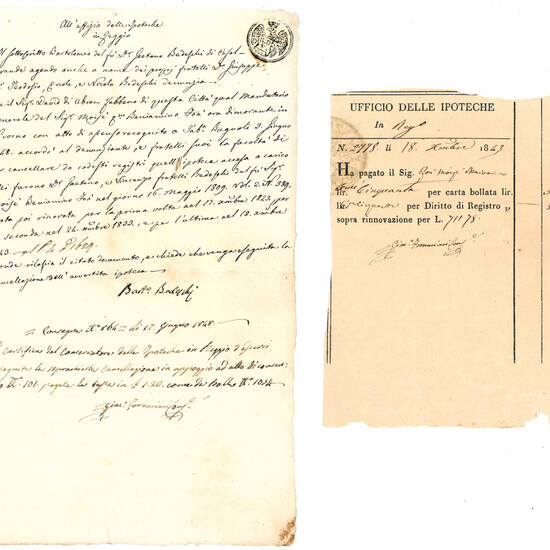 All'uffizio delle Ipoteche
in Reggio
Il Sottoscritto Bartolomeo del fu Dr. Gaetano Bedeschi di Casal-
grande agendo anche a nome dei propri fratelli Dr. Giuseppe,
Teodosio, Ercole, e Nicola Bedeschi denunzia
il Sigr. David di Abram Jabbeno di questa Città qual Mandatario
Generale del Sigr. Moisè qm. Beniamino Foà ora dimorante in
Livorno con atto di assenso recognito a Bagnoli Giugno
48. accordò al denunziante e fratelli suoi la facoltà di
cancellare da codesti registri quell'ipoteca accesa a carico
furono Dr. Gaetano, e Vincenzo fratelli Bedeschi dal fu Sigr.
Moisè Beniamino Foà nel giorno 16. Maggio 1809. Vol. 2. N. 389.
stata poi rinovata per la prima volta nel 17. 1823. per
la seconda nel 26. 1833. e per l'ultima nel 18. Xmbre
43.
onde rilascia il citato documento, e chiede che venga eseguita la
cancellazione dell'avvertita ipoteca
Barto. Bedeschi
Consegna N. 164 li 12 Giugno 1848
certifica dal Conservatore delle Ipoteche in Reggio d'essersi
eseguita la soprascritta Cancellazione in appoggio ad atto di
N. 101. pagata la tassa in £ 1.20. come da Bolla N. 1014
Giac. Fornaciari Cons.
UFFICIO DELLE IPOTECHE
In Regg
N. 2778 li 18. Xmbre 1843
HA pagato il Sig. Foà Moisè
lir. Cinquanta per carta bollata lir.
lir. Cinquanta per Diritto di Registro „
sopra rinnovazione per L. 71178.
Giac. Fornaciari Cons.